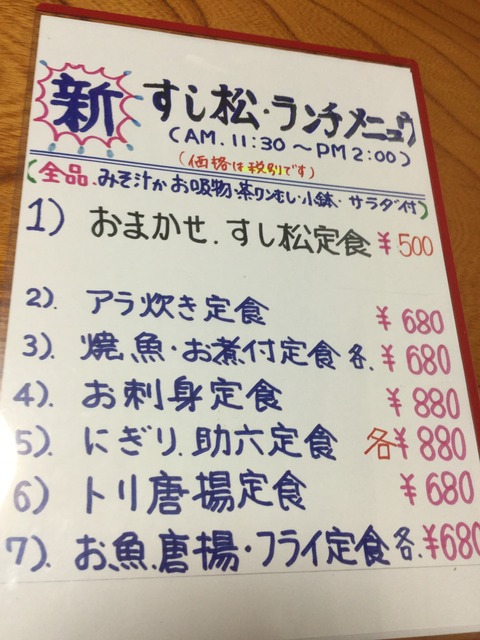 新 すし松・ランチメニュウ
(AM.11:30～PM2:00)
(価格は税別です)
(全品.みそ汁かお吸物・茶ワンむし・小鉢・サラダ付)
1) おまかせ.すし松定食 ¥500
2). アラ炊き定食 ¥680
3). 焼魚・お煮付定食 各.¥680
4). お刺身定食 ¥880
5). にぎり.助六定食 各¥880
6). トリ唐揚定食 ¥680
7). お魚.唐揚・フライ定食各.¥680